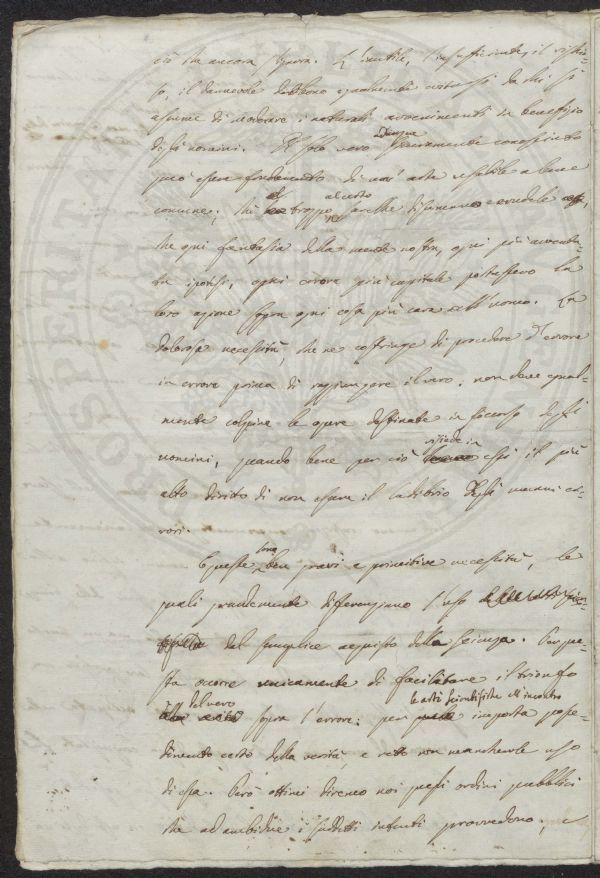 ciò che ancora ignora. L'inutile, l'insufficiente, il
so, il dannevole debbono egualmente da chi si
assume di moderare i naturali avvenimenti in benefizio
degli uomini. Il solo vero dunque sicuramente conosciuto
può essere fondamento di un'arte usabile a bene
comune; chè troppo al certo sarebbe disumano e crudele
che ogni fantasia della mente nostra, ogni più avventa-
ta ipotesi, ogni errore più capitale portassero la
loro azione sopra ogni cosa più cara all'uomo. La
dolorosa necessità, che ne costringe di procedere d'errore
in errore prima di raggiungere il vero, non deve egual-
mente colpire le opere destinate in soccorso degli
uomini, quando bene per ciò risiede in essi il più
alto diritto di non essere il ludibrio degli umani er-
rori.
E queste sono ben gravi e primitive necessità, le
quali grandemente differenziano l'uso
del semplice acquisto della scienza. Per que-
sta occorre unicamente di facilitare il trionfo
del vero sopra l'errore: per le arti scientifiche all'incontro importa posse-
dimento certo della verità, e retto non manchevole uso
di essa. Però ottimi diremo noi quegli ordini pubblici
che ad ambidue i suddetti intenti provvedono, e